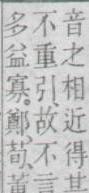 音之相近得其
不重引故不言
多益寡。鄭、荀、董